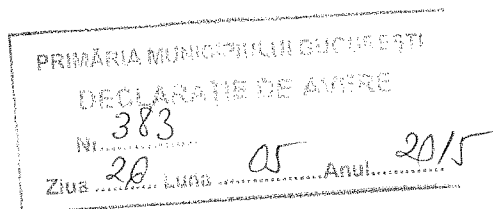 PRIMĂRIA MUNICIPIULUI BUCUREŞTI
DECLARAŢIE DE AVERE
Nr. 383
Ziua 20 Luna 05 Anul 2015